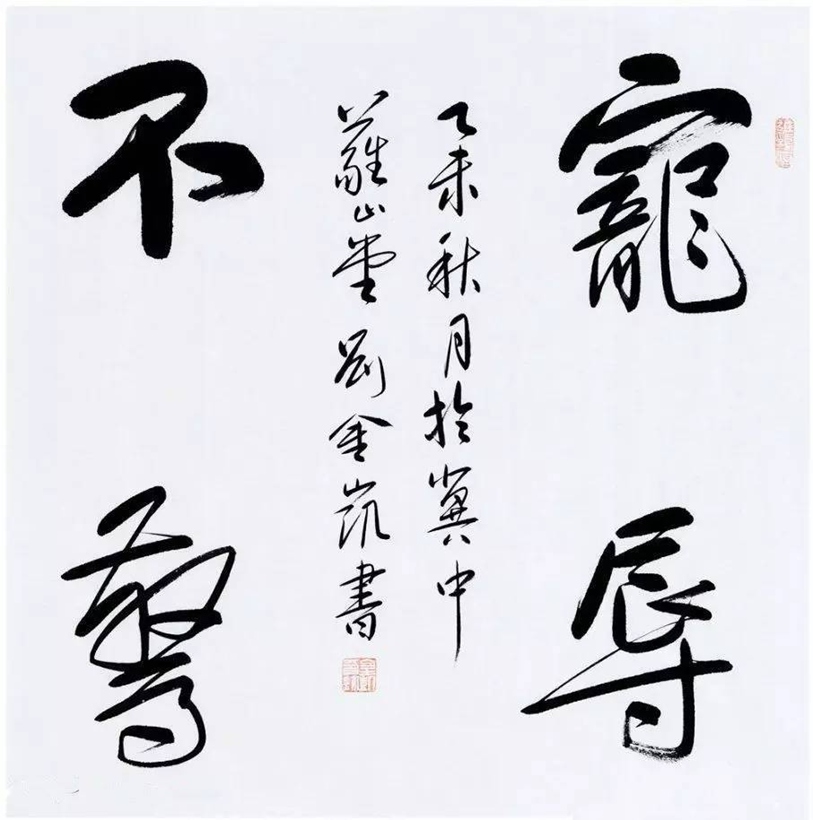 寵辱
不驚
乙未秋月於冀中
蘿山堂劉金凱書